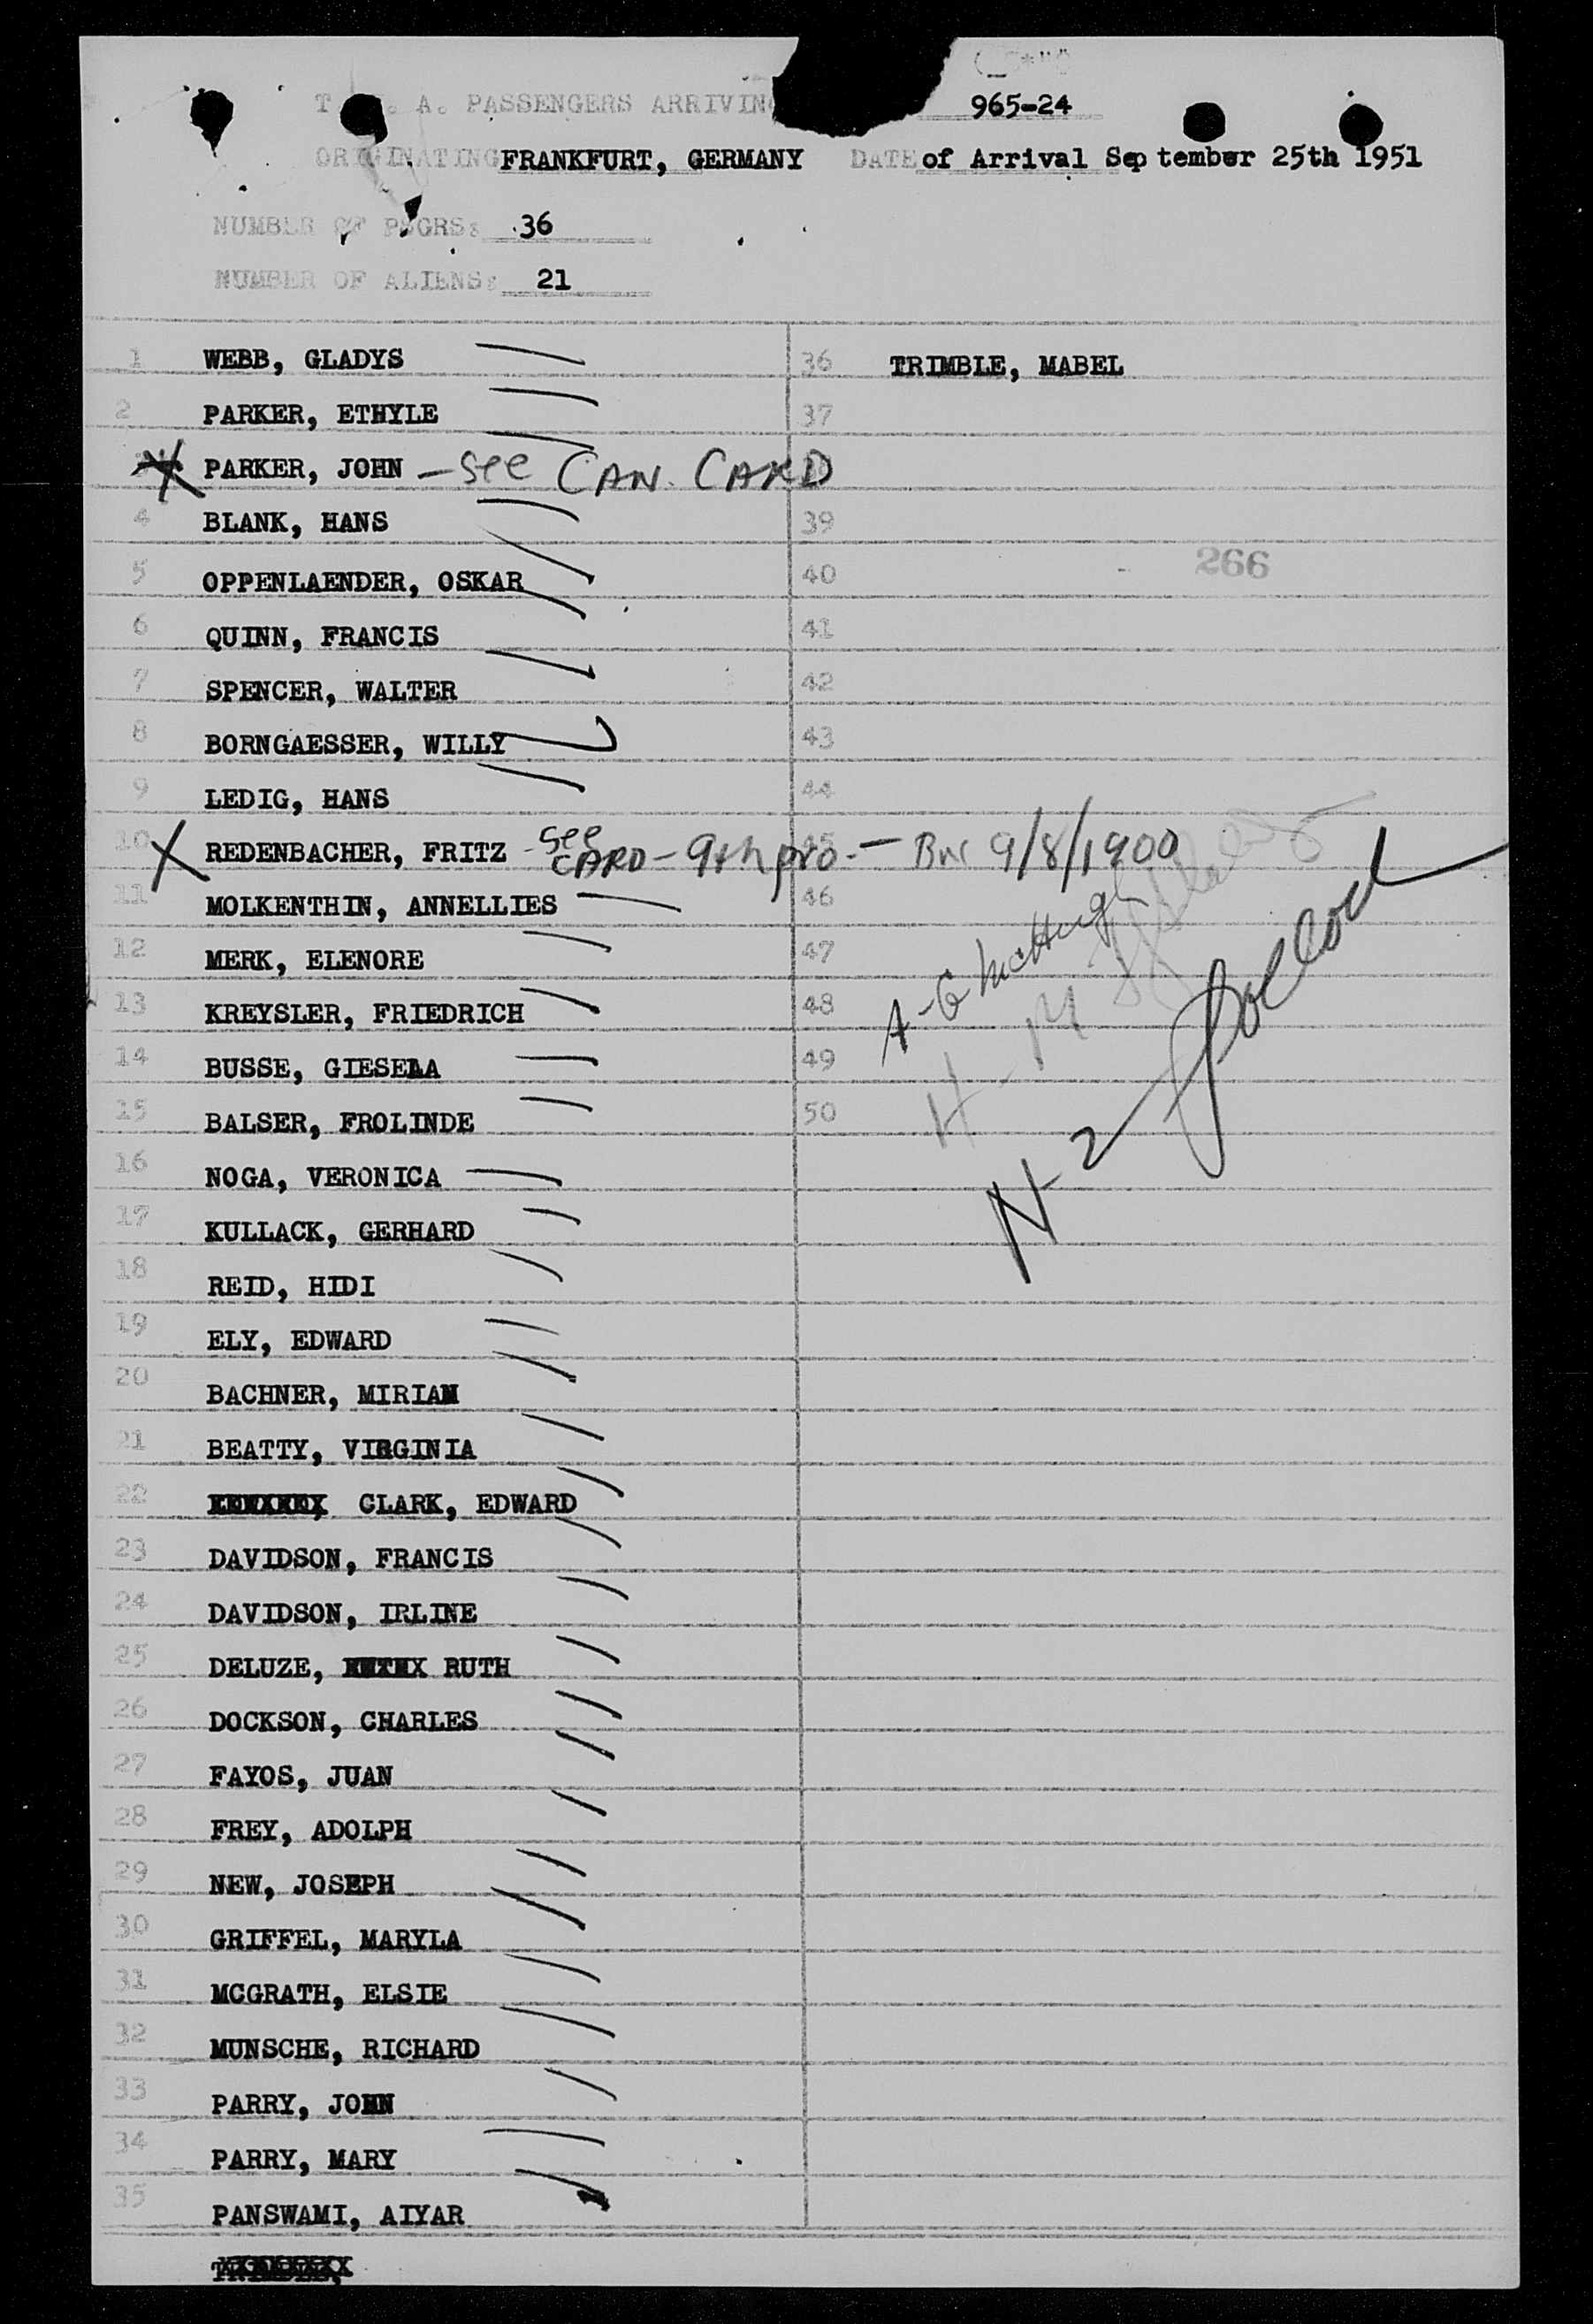 T. A. PASSENGERS ARRIVING 965-24
ORIGINATING FRANKFURT, GERMANY DATE of Arrival September 25th 1951
NUMBER OF PSGRS: 36
NUMBER OF ALIENS: 21
1 WEBB, GLADYS
2 PARKER, ETHYLE
PARKER, JOHN - See CAN. CARD
4 BLANK, HANS
5 OPPENLAENDER, OSKAR
6 QUINN, FRANCIS
7 SPENCER, WALTER
8 BORNGAESSER, WILLY
9 LEDIG, HANS
10 X REDENBACHER, FRITZ - See CARD - 9th pro. - 9/8/1900
11 MOLKENTHIN, ANNELLIES
12 MERK, ELENORE
13 KREYSLER, FRIEDRICH
14 BUSSE, GIESELA
15 BALSER, FROLINDE
16 NOGA, VERONICA
17 KULLACK, GERHARD
18 REID, HIDI
19 ELY, EDWARD
20 BACHNER, MIRIAM
21 BEATTY, VIRGINIA
22 CLARK, EDWARD
23 DAVIDSON, FRANCIS
24 DAVIDSON, IRLINE
25 DELUZE, RUTH
26 DOCKSON, CHARLES
27 FAYOS, JUAN
28 FREY, ADOLPH
29 NEW, JOSEPH
30 GRIFFEL, MARYLA
31 MCGRATH, ELSIE
32 MUNSCHE, RICHARD
33 PARRY, JOHN
34 PARRY, MARY
35 PANSWAMI, AIYAR
36 TRIMBLE, MABEL
37
39
40
266
41
42
43
44
45
46
47
48
49
50
A-G McHugh
H-M
N-Z Pollock